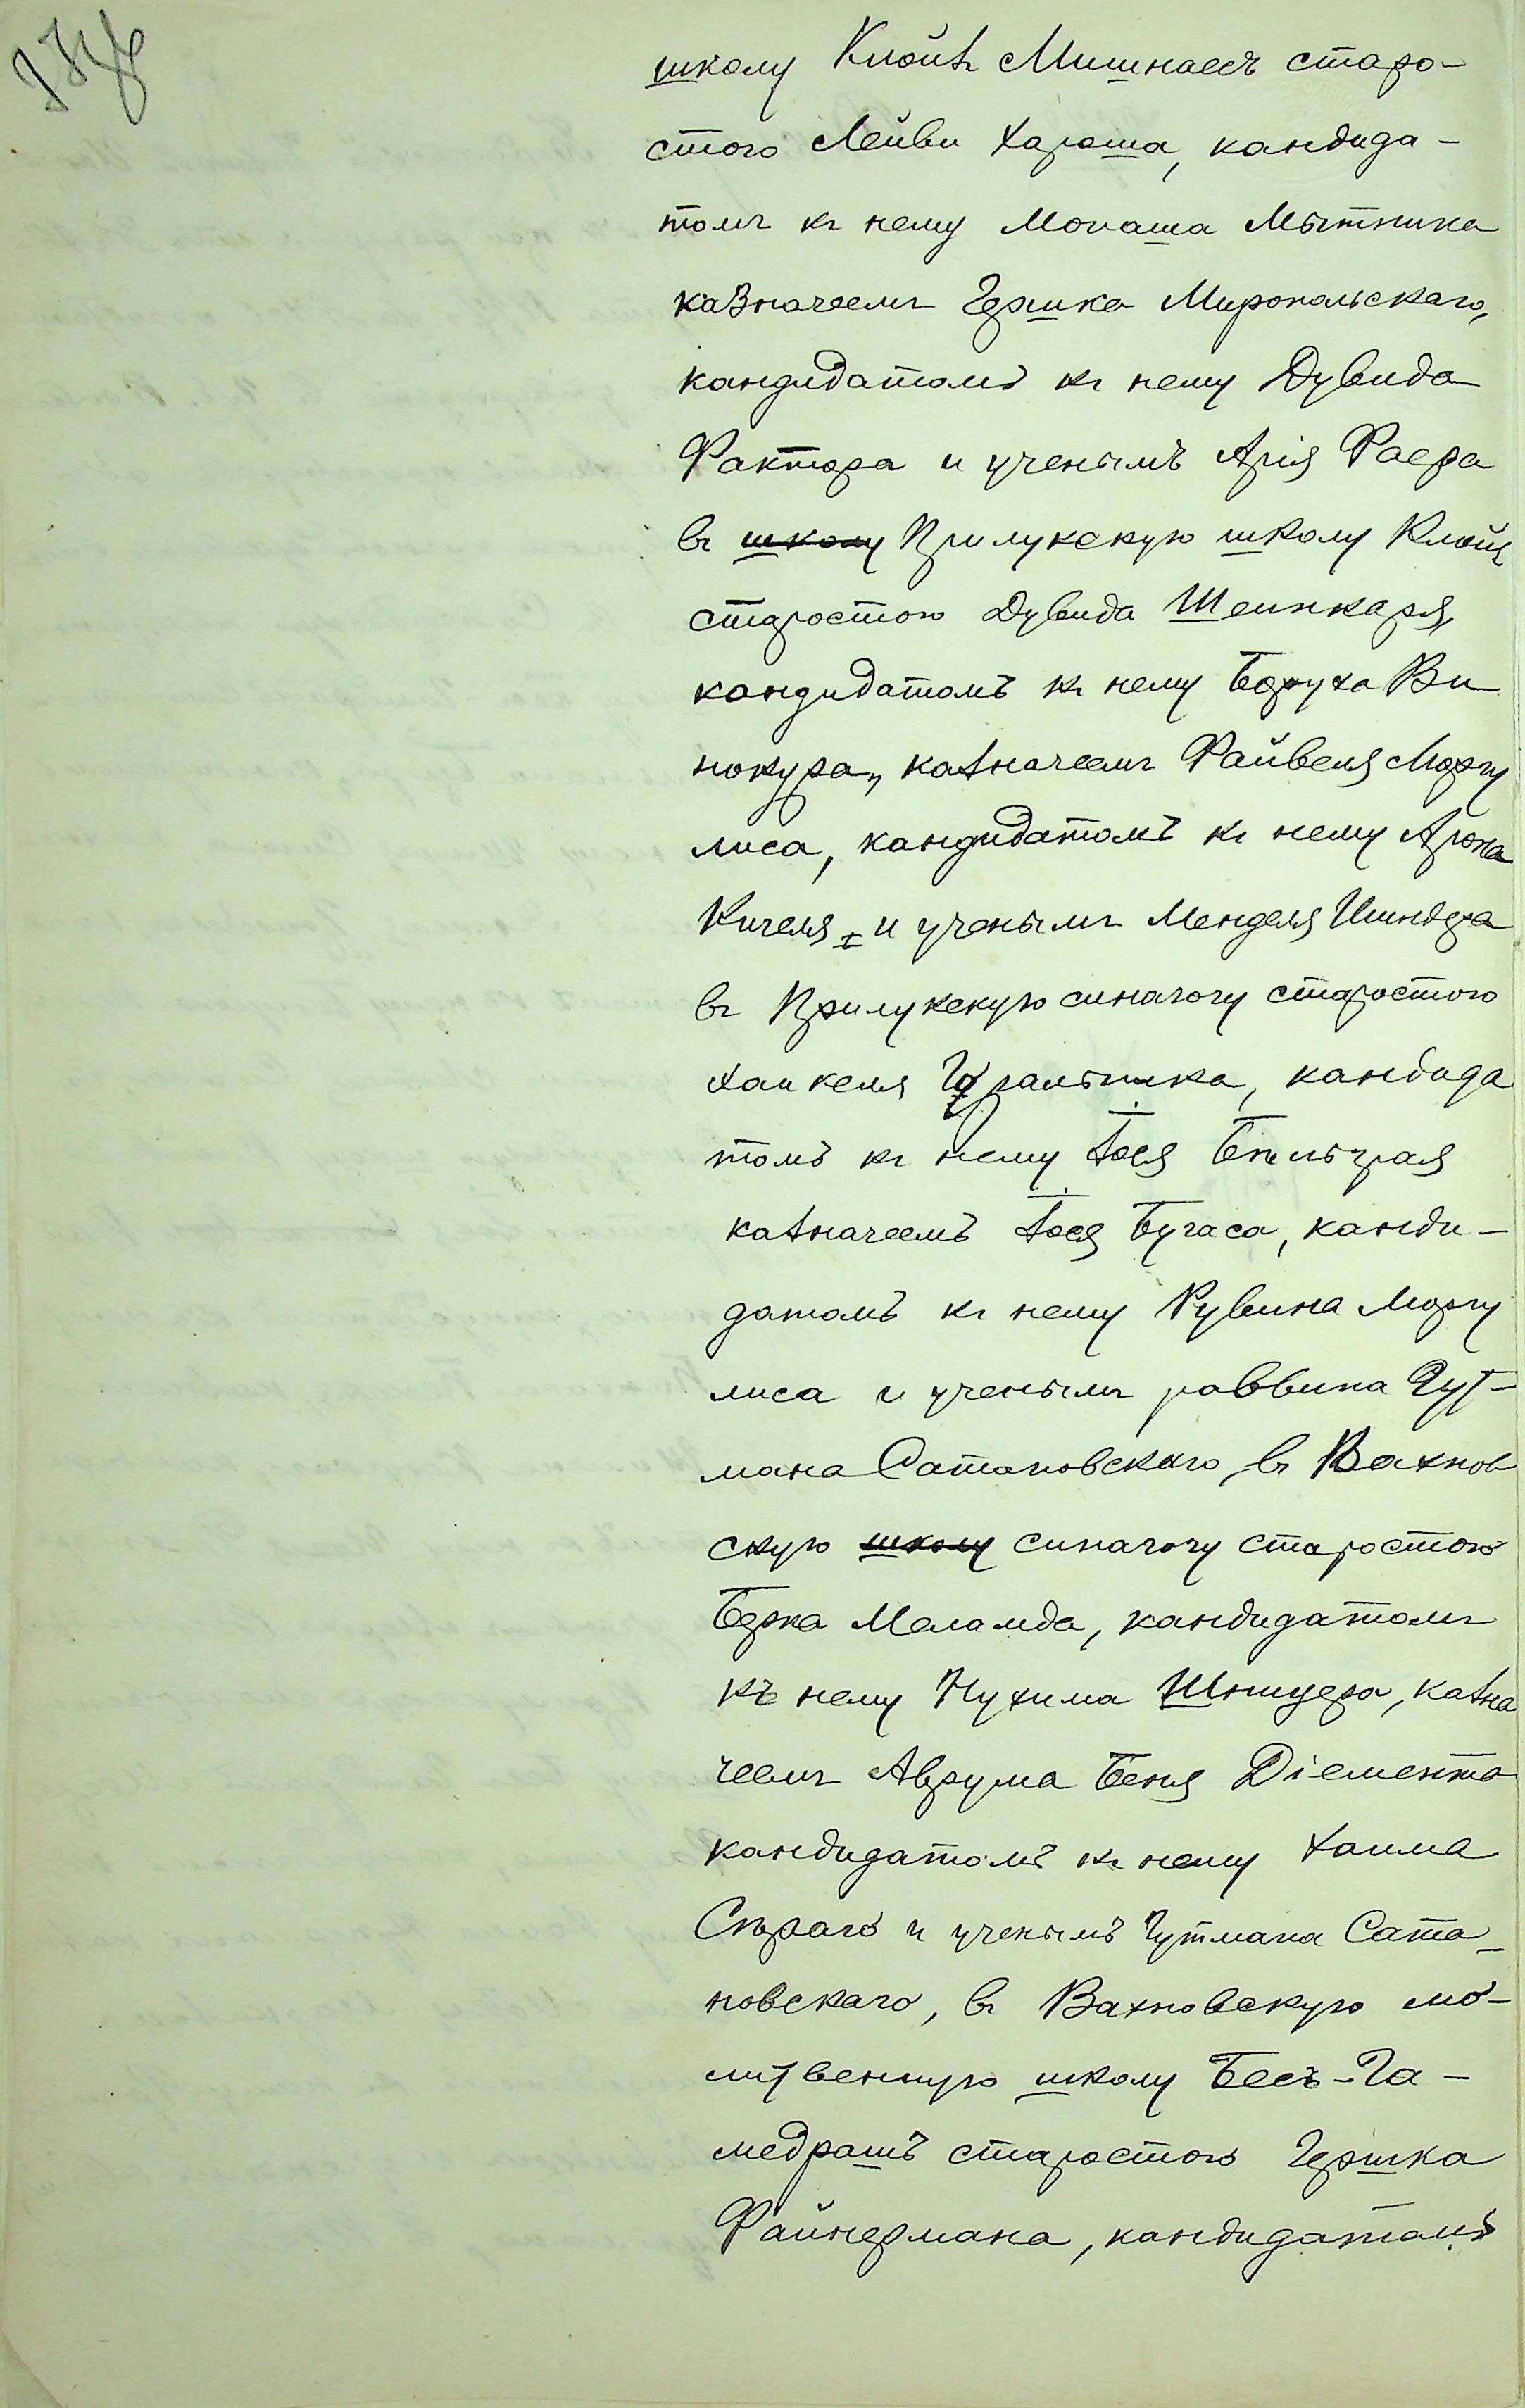 школу Клойзъ Мишнаесъ старо-
стою Лейви Хароша, кандида-
томъ къ нему Монаша Мытника
казначеемъ Гершка Миропольскаго,
кандидатомъ къ нему Дувида
Фактора и ученымъ Арія Раера
въ школу Прилукскую школу Клойзъ
старостою Дувида Шеинкаря,
кандидатомъ къ нему Боруха Ви
нокура, казначеемъ Файвеля Моргу
лиса, кандидатомъ къ нему Арона
Кичеля и ученымъ Менделя
въ Прилукскую синагогу старостою
Хаикеля Гуральника, кандида
томъ къ нему Іося Бельграя
казначеемъ Іося Бугаса, канди-
датомъ къ нему Рувина Моргу
лиса и ученымъ раввина Гут-
мана Сатановскаго, въ Вахнов
скую школу синагогу старостою
Берка Меламда, кандидатомъ
къ нему Нухима Шницера, казна
чеемъ Аврума Беня Діемента
кандидатомъ къ нему Хаима
Сѣраго и ученымъ Гутмана Сата-
новскаго, въ Вахновскую мо-
литвенную школу Бесъ-Га-
медрашъ старостою Гершка
Файнермана, кандидатомъ